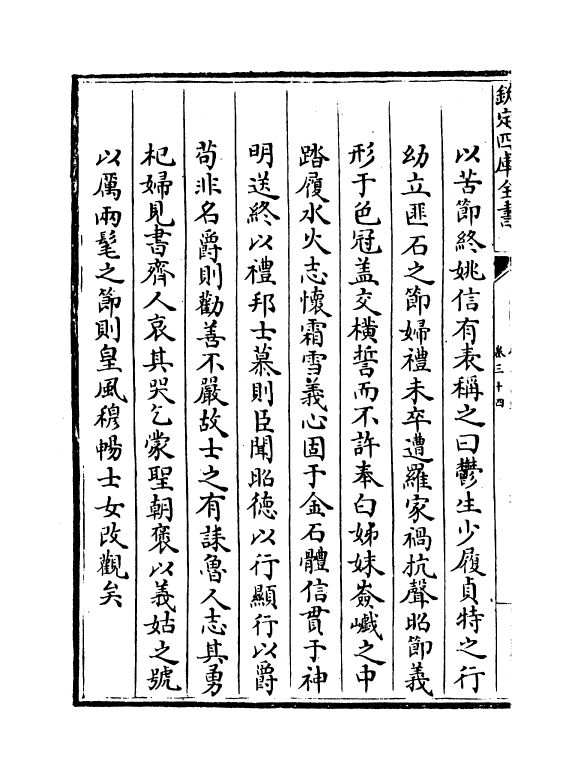 欽定四庫全書
卷三十四
以苦節終姚信有表稱之曰鬱生少履貞特之行
幼立匪石之節婦禮未卒遭羅家禍抗聲昭節義
形于色冠盖交橫誓而不許奉白姊妹嶮巇之中
踏履水火志懷霜雪義心固于金石體信貫于神
明送終以禮邦士慕則臣聞昭德以行顯行以爵
茍非名爵則勸善不嚴故士之有誄魯人志其勇
杞婦見書齊人哀其哭乞蒙聖朝褒以義姑之號
以厲兩髦之節則皇風穆暢士女改觀矣